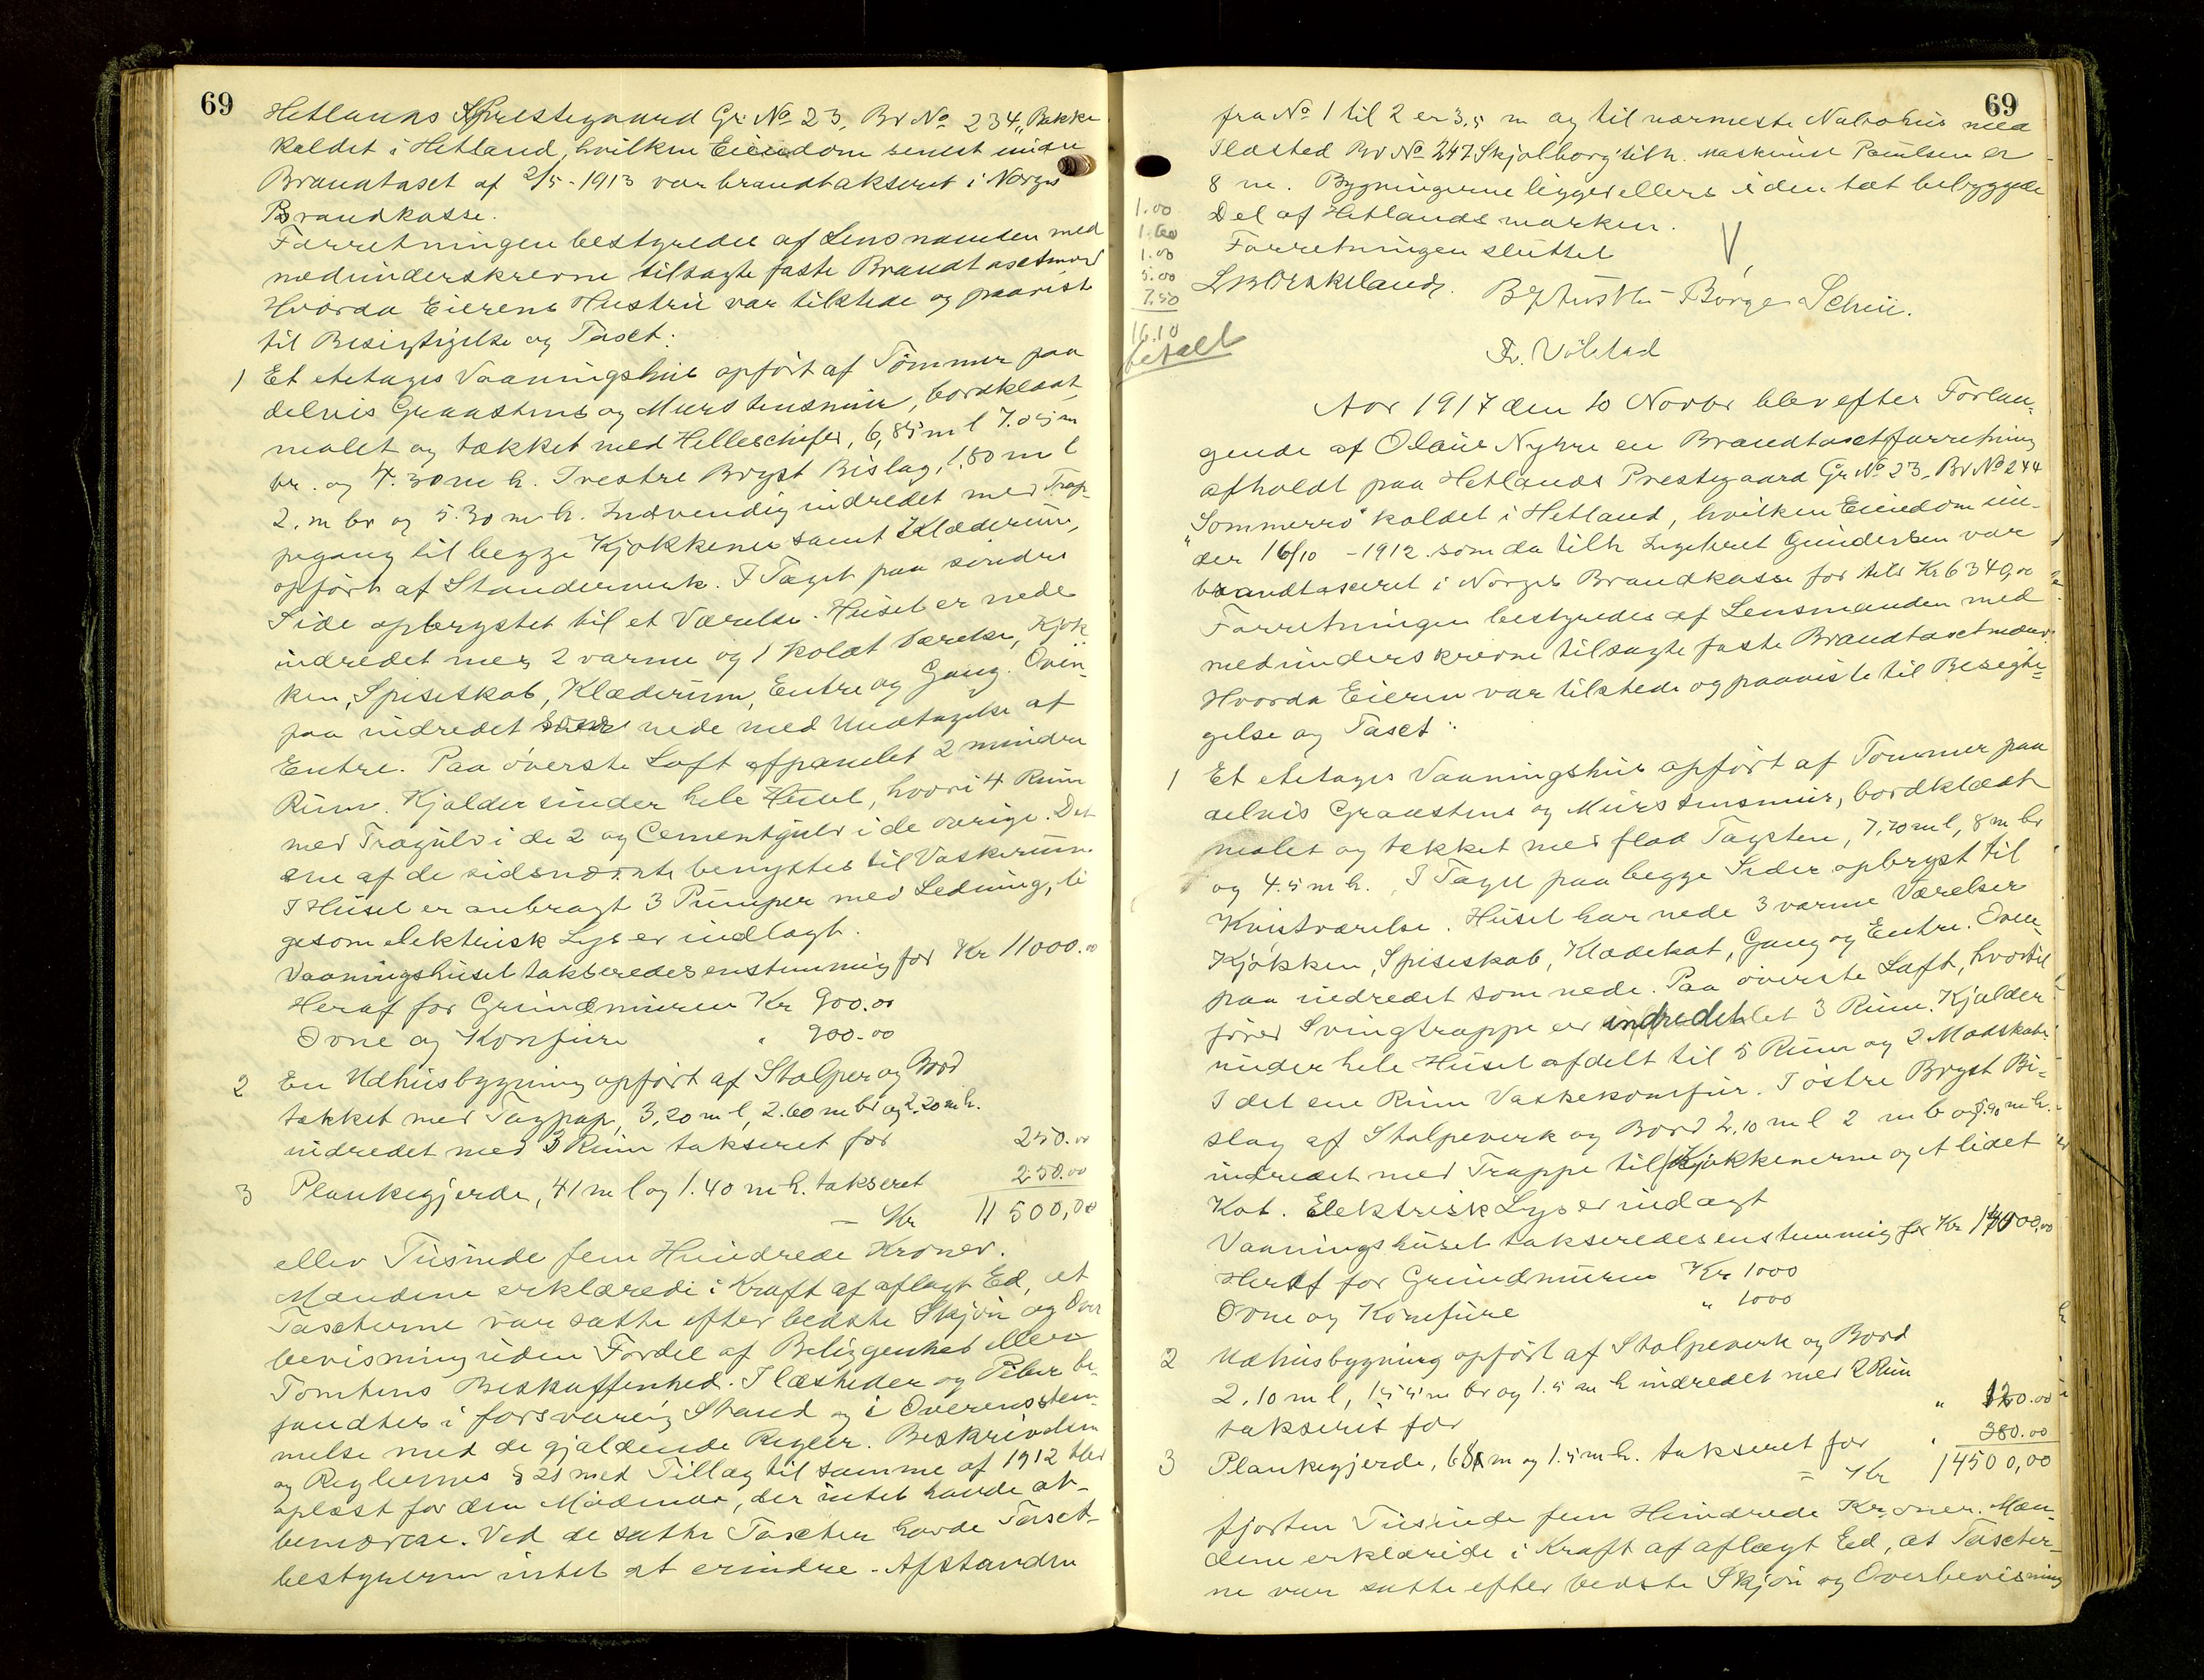 69
Hetlands Prestegaard Gr. No 23, Br No 234 „Bakke
kaldet i Hetland, hvilken Eiendom senest under
Brandtaxt af 2/5-1913 var brandtakseret i Norges
Brandkasse.
Forretningen bestyredes af Lensmanden med
medunderskrevne tilsagte faste Brandtaxtmænd
Hvorda Eierens Hustru var tilstede og paaviste
til Besigtigelse og Taxt:
1 Et etetages Vaaningshus opført af Tømmer paa
delvis Graastens og Murstensmur, bordklædt,
malet og tækket med Helleschifer, 6,85 m l 7.05 m
br. og 4.30 m h. I vestre Bryst Bislag, 1.80 m l
2. m br og 5.30 m h. Indvendig indredet med Trap-
pegang til begge Kjøkkener samt Klæderum,
opført af Standerverk. I Taget paa søndre
Side opbrystet til et Værelse. Huset er nede
indredet med 2 varme og 1 koldt Værelse, Kjøk
ken, Spiseskab, Klæderum, Entre og Gang. Oven-
paa indredet som nede med Undtagelse af
Entre. Paa øverste Loft afpanelet 2 mindre
Rum. Kjælder under hele Huset, hvori 4 Rum
med Trægulv i de 2 og Cementgulv i de øvrige. Det
ene af de sidsnævnte benyttes til Vaskerum.
I Huset er anbragt 3 Pumper med Ledning, li
gesom elektrisk Lys er indlagt.
Vaaningshuset takseredes enstemmig for Kr 11000.00
Heraf for Grundmuren Kr 900.00
Ovne og Komfure " 900.00
2 En Udhusbygning opført af Stolper og Bord
tækket med Tagpap, 3,20 m l, 2.60 m br og 2.20 m h.
indredet med 3 Rum takseret for 250.00
3 Plankegjerde, 41 m l og 1.40 m h. takseret 250.00
– Kr 11 500,00
ellev Tusinde fem Hundrede Kroner.
Mændene erklærede i Kraft af aflagt Ed, at
Taxterne var satte efter bedste Skjøn og Over
bevisning uden Fordel af Beliggenhed eller
Tomtens Beskaffenhed. Ildsteder og Piber be-
fandtes i forsvarlig Stand og i Overensstem-
melse med de gjældende Regler. Beskrivelsen
og Reglernes § 21 med Tillæg til samme af 1912 blev
oplæst for den Mødende, der intet havde at
bemærke. Ved de satte Taxter havde Taxt-
bestyreren intet at erindre. Afstanden
69
fra No 1 til 2 er 3,5 m og til nærmeste Nabohus med
Ildsted Br No 247 Skjolborg tilh. Maskinist Paulsen er
8 m. Bygningerne ligger ellers i den tæt bebyggede
Del af Hetlandsmarken.
Forretningen sluttet
1.00
1.60
1.00
5.00
7.50
16.10
betalt
Børge Schiü.
Fr. Vølstad
Aar 1917 den 10 Novbr blev efter Forlan-
gende af Olaus Nyhre en Brandtaxtforretning
afholdt paa Hetlands Prestegaard Gr. No 23, Br No 244
„Sommerro" kaldet i Hetland, hvilken Eiendom un-
der 16/10 - 1912 som da tilh Ingebret Gundersen var
brandtaxeret i Norges Brandkasse for tils Kr 6340,00
Forretningen bestyredes af Lensmanden med
medunderskrevne tilsagte faste Brandtaxtmænd.
Hvorda Eieren var tilstede og paaviste til Besigti-
gelse og Taxt:
1 Et etetages Vaaningshus opført af Tømmer paa
delvis Graastens og Murstensmur, bordklædt
malet og tækket med flad Tagsten, 7,70 m l, 8 m br
og 4.5 m h. I Taget paa begge Sider opbryst til
Kvistværelse. Huset har nede 3 varme Værelser
Kjøkken, Spiseskab, Klædekot, Gang og Entre. Oven-
paa indredet som nede. Paa øverste Loft, hvortil
fører Svingtrappe er indredet 3 Rum. Kjælder
under hele Huset afdelt til 5 Rum og 2 Madskabe
I det ene Rum Vaskekomfur. I østre Bryst Bi-
slag af Stolpeverk og Bord 2.10 m l 2 m b og 5.90 m h.
indredet med Trappe til Kjøkkenerne og et lidet
Kot. Elektrisk Lys er indlagt
Vaaningshuset takseredes enstemmig for Kr 14000,00
Heraf for Grundmuren Kr 1000
Ovne og Komfure " 1000
2 Udhusbygning opført af Stolpeverk og Bord
2.10 m l, 1.55 m br og 1.5 m h indredet med 2 Rum
takseret for " 120.00
3 Plankegjerde, 68 m og 1.5 m h. takseret for " 380.00
= Kr 14500,00
fjorten Tusinde fem Hundrede Kroner. Mæn-
dene erklærede i Kraft af aflagt Ed, at Taxter-
ne var satte efter bedste Skjøn og Overbevisning